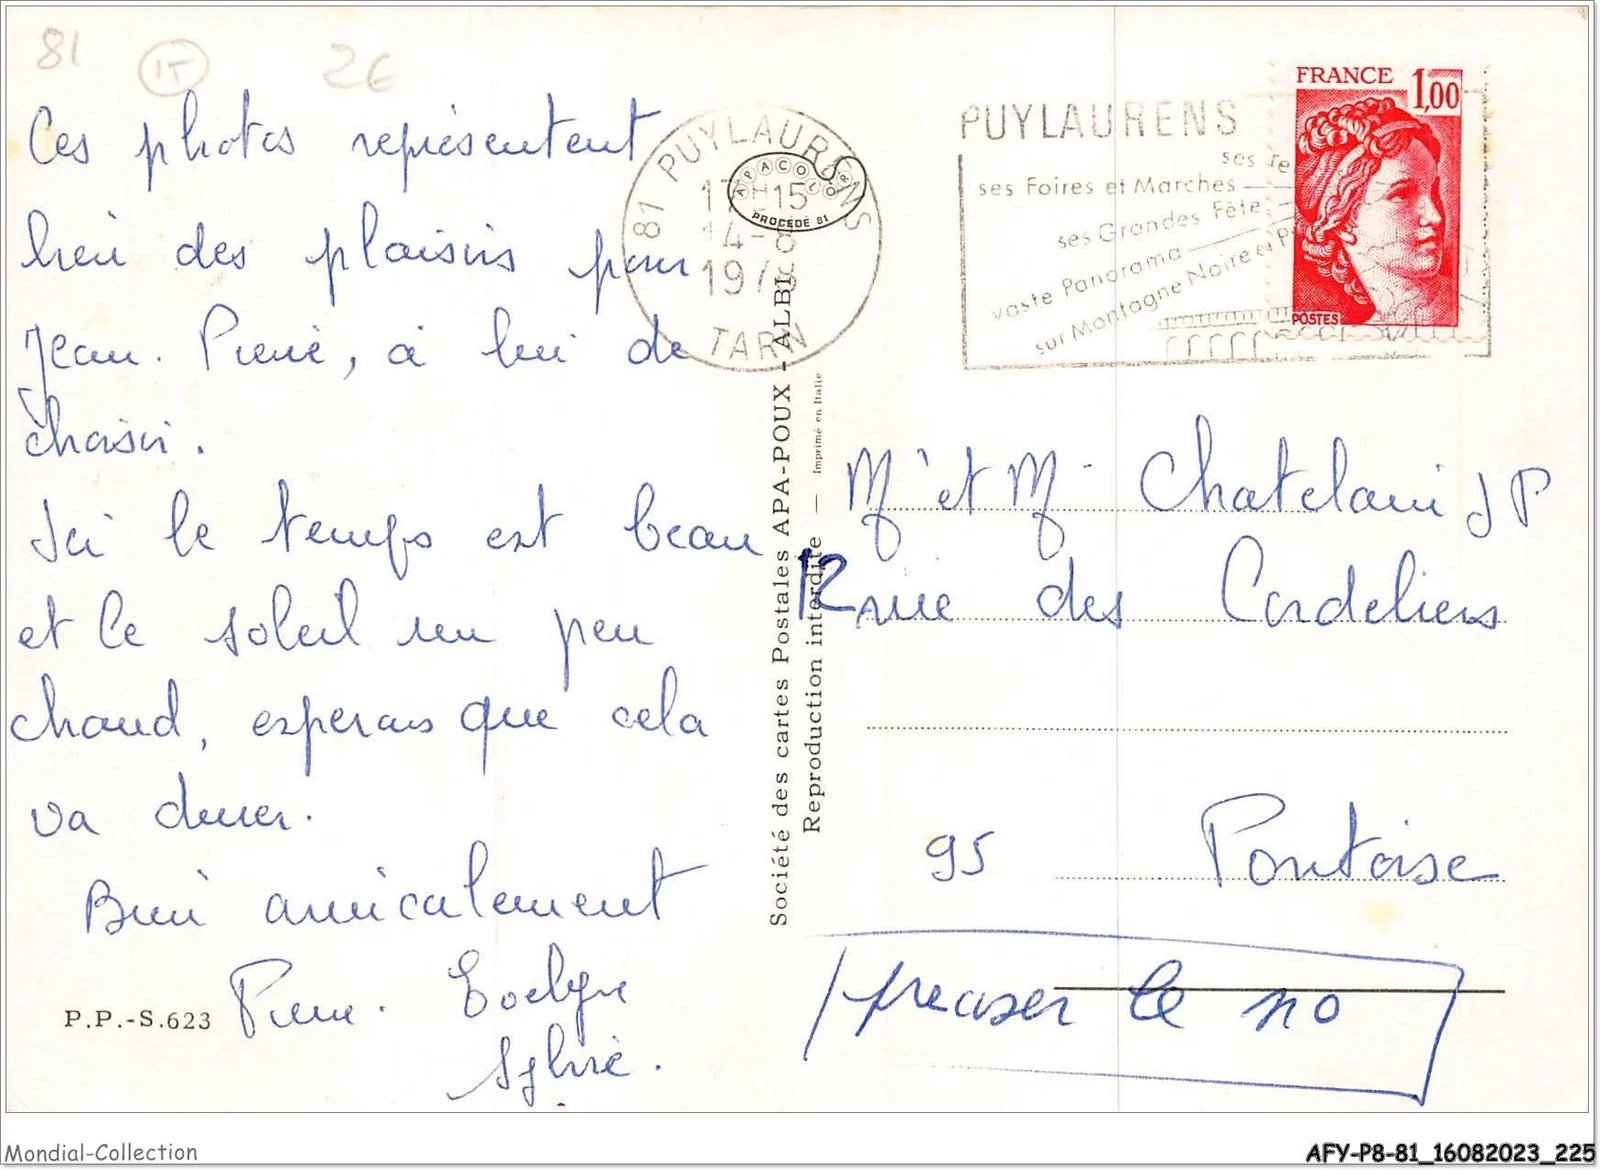 81 15 2€
Ces photos représentent
lieu des plaisirs pour
Jean. Pierre, à lui de
choisir.
Ici le temps est beau
et le soleil un peu
chaud, esperons que cela
va durer.
Bien amicalement
Pierre. Evelyne
Sylvie.
P.P.-S.623
81 PUYLAURENS
17H15
14-8
197
TARN
APACOLOR
PROCÉDÉ 81
Société des cartes Postales APA-POUX - ALBI
Reproduction interdite — Imprimé en Italie
PUYLAURENS
ses
ses Foires et Marches
ses Grandes Fête
vaste Panorama
sur Montagne Noire et
FRANCE 1,00
POSTES
Mr et Me Chatelain JP
12 rue des Cordeliers
95 Pontoise
préciser le no
Mondial-Collection
AFY-P8-81_16082023_225